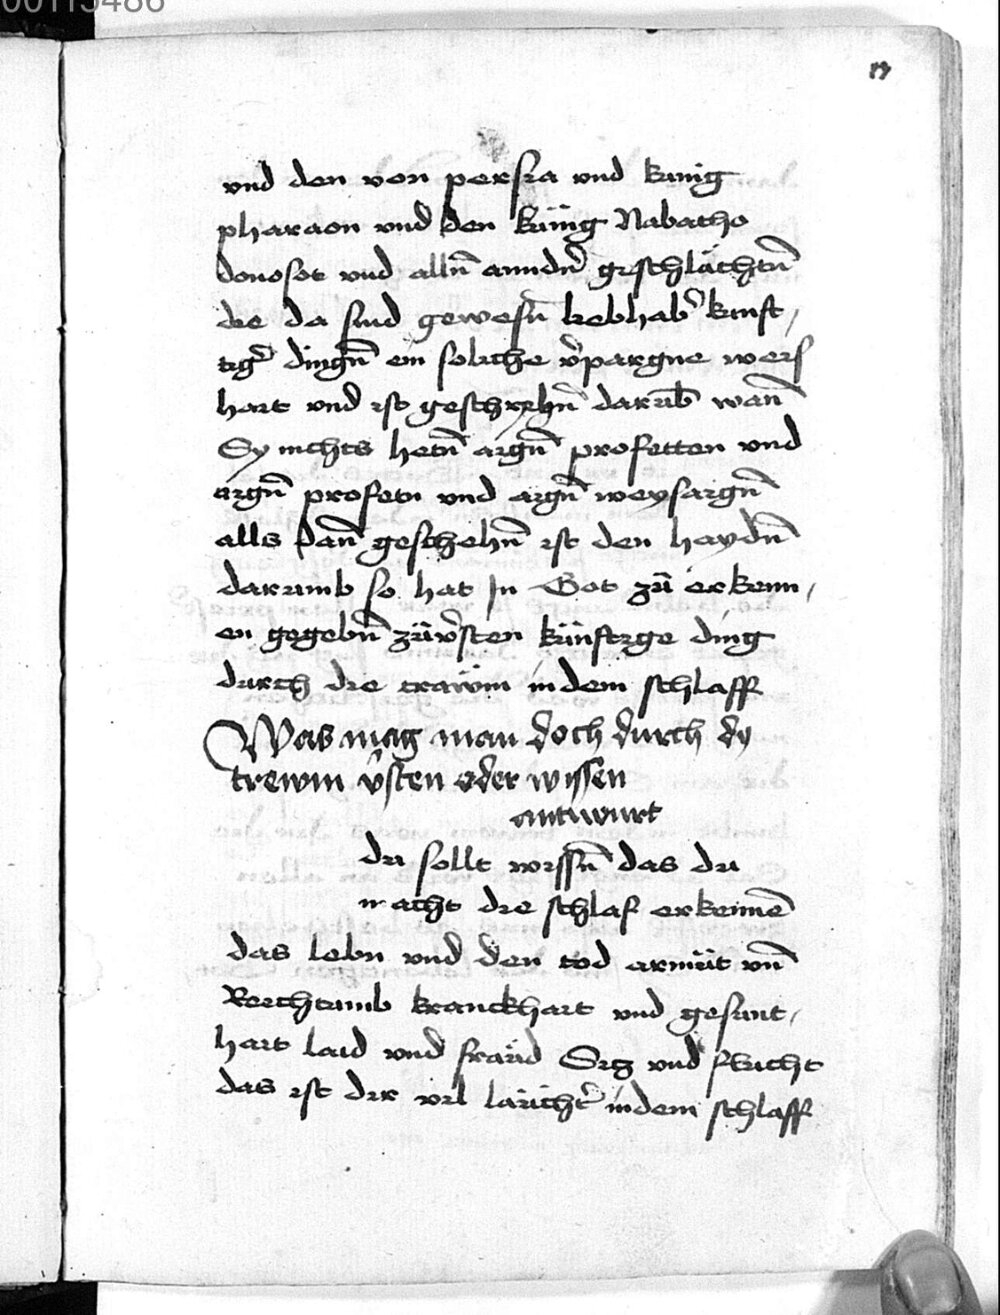 00115486
vnd den von persia vnd kunig
pharaon vnd den kunig Nabatho
donosor vnd alln̄ anndn̄ geschlächtn̄
die da sind gewesn̄ liebhab̄ kunft,
tigr̄ dingn̄ ein soliche v̄pargne weis
hait vnd ist geschechn̄ darub̄ wan̄
Sy nichts hetn̄ aign̄ profetten vnd
aign̄ profetn vnd aign̄ weyssagn̄
alls dan̄ geschehn̄ ist den haydn̄
darumb so hat In Got zü erkenn,
en gegebn̄ züv̄sten künftige ding
durch die trawm in dem schlaff
Was mag man doch durch dy
trewm v̄sten oder wissen
antwurt
du sollt wissn̄ das du
macht die schlaf erkennē
das lebn vnd den tod armüt vn̄
Reichtumb kranckhait vnd gesunt,
hait laid vnd fraüd Sig vnd flucht
das ist dir vil laichtr̄ in dem schlaff